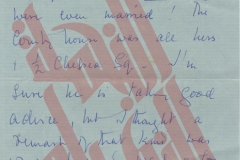 were even married! The
County house was all hers
& Chelsea S I'm
Sure he is taking good
advice, but I thought a
remark of that kind was